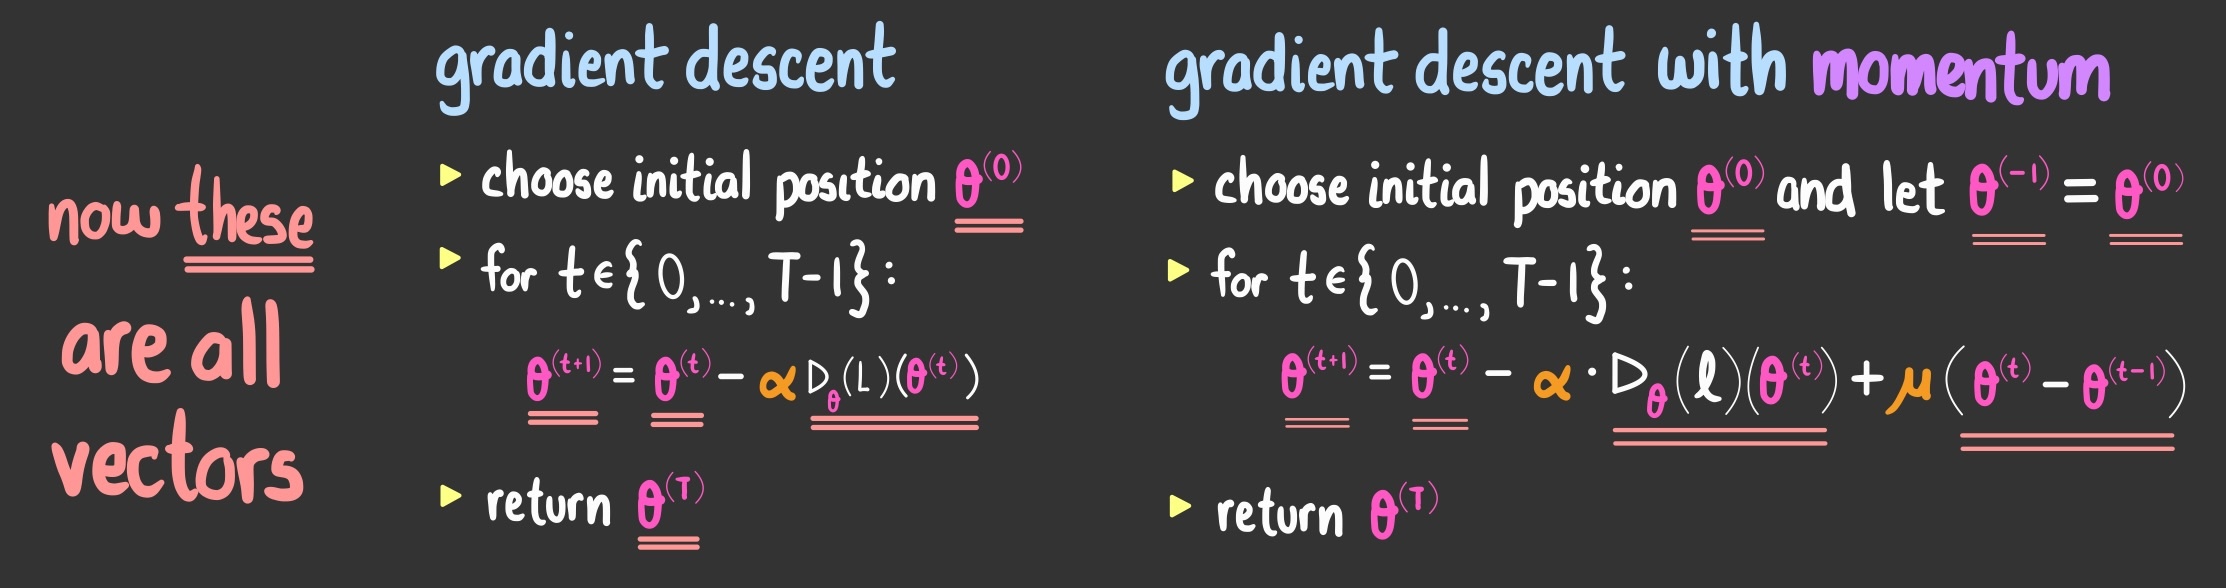 now these
are all
vectors
gradient descent
▶ choose initial position θ⁽⁰⁾
▶ for t ∈ {0,...,T-1}:
θ⁽ᵗ⁺¹⁾ = θ⁽ᵗ⁾ - α D_θ(L)(θ⁽ᵗ⁾)
▶ return θ⁽ᵀ⁾
gradient descent with momentum
▶ choose initial position θ⁽⁰⁾ and let θ⁽⁻¹⁾ = θ⁽⁰⁾
▶ for t ∈ {0,...,T-1}:
θ⁽ᵗ⁺¹⁾ = θ⁽ᵗ⁾ - α · D_θ(ℓ)(θ⁽ᵗ⁾) + μ(θ⁽ᵗ⁾ - θ⁽ᵗ⁻¹⁾)
▶ return θ⁽ᵀ⁾